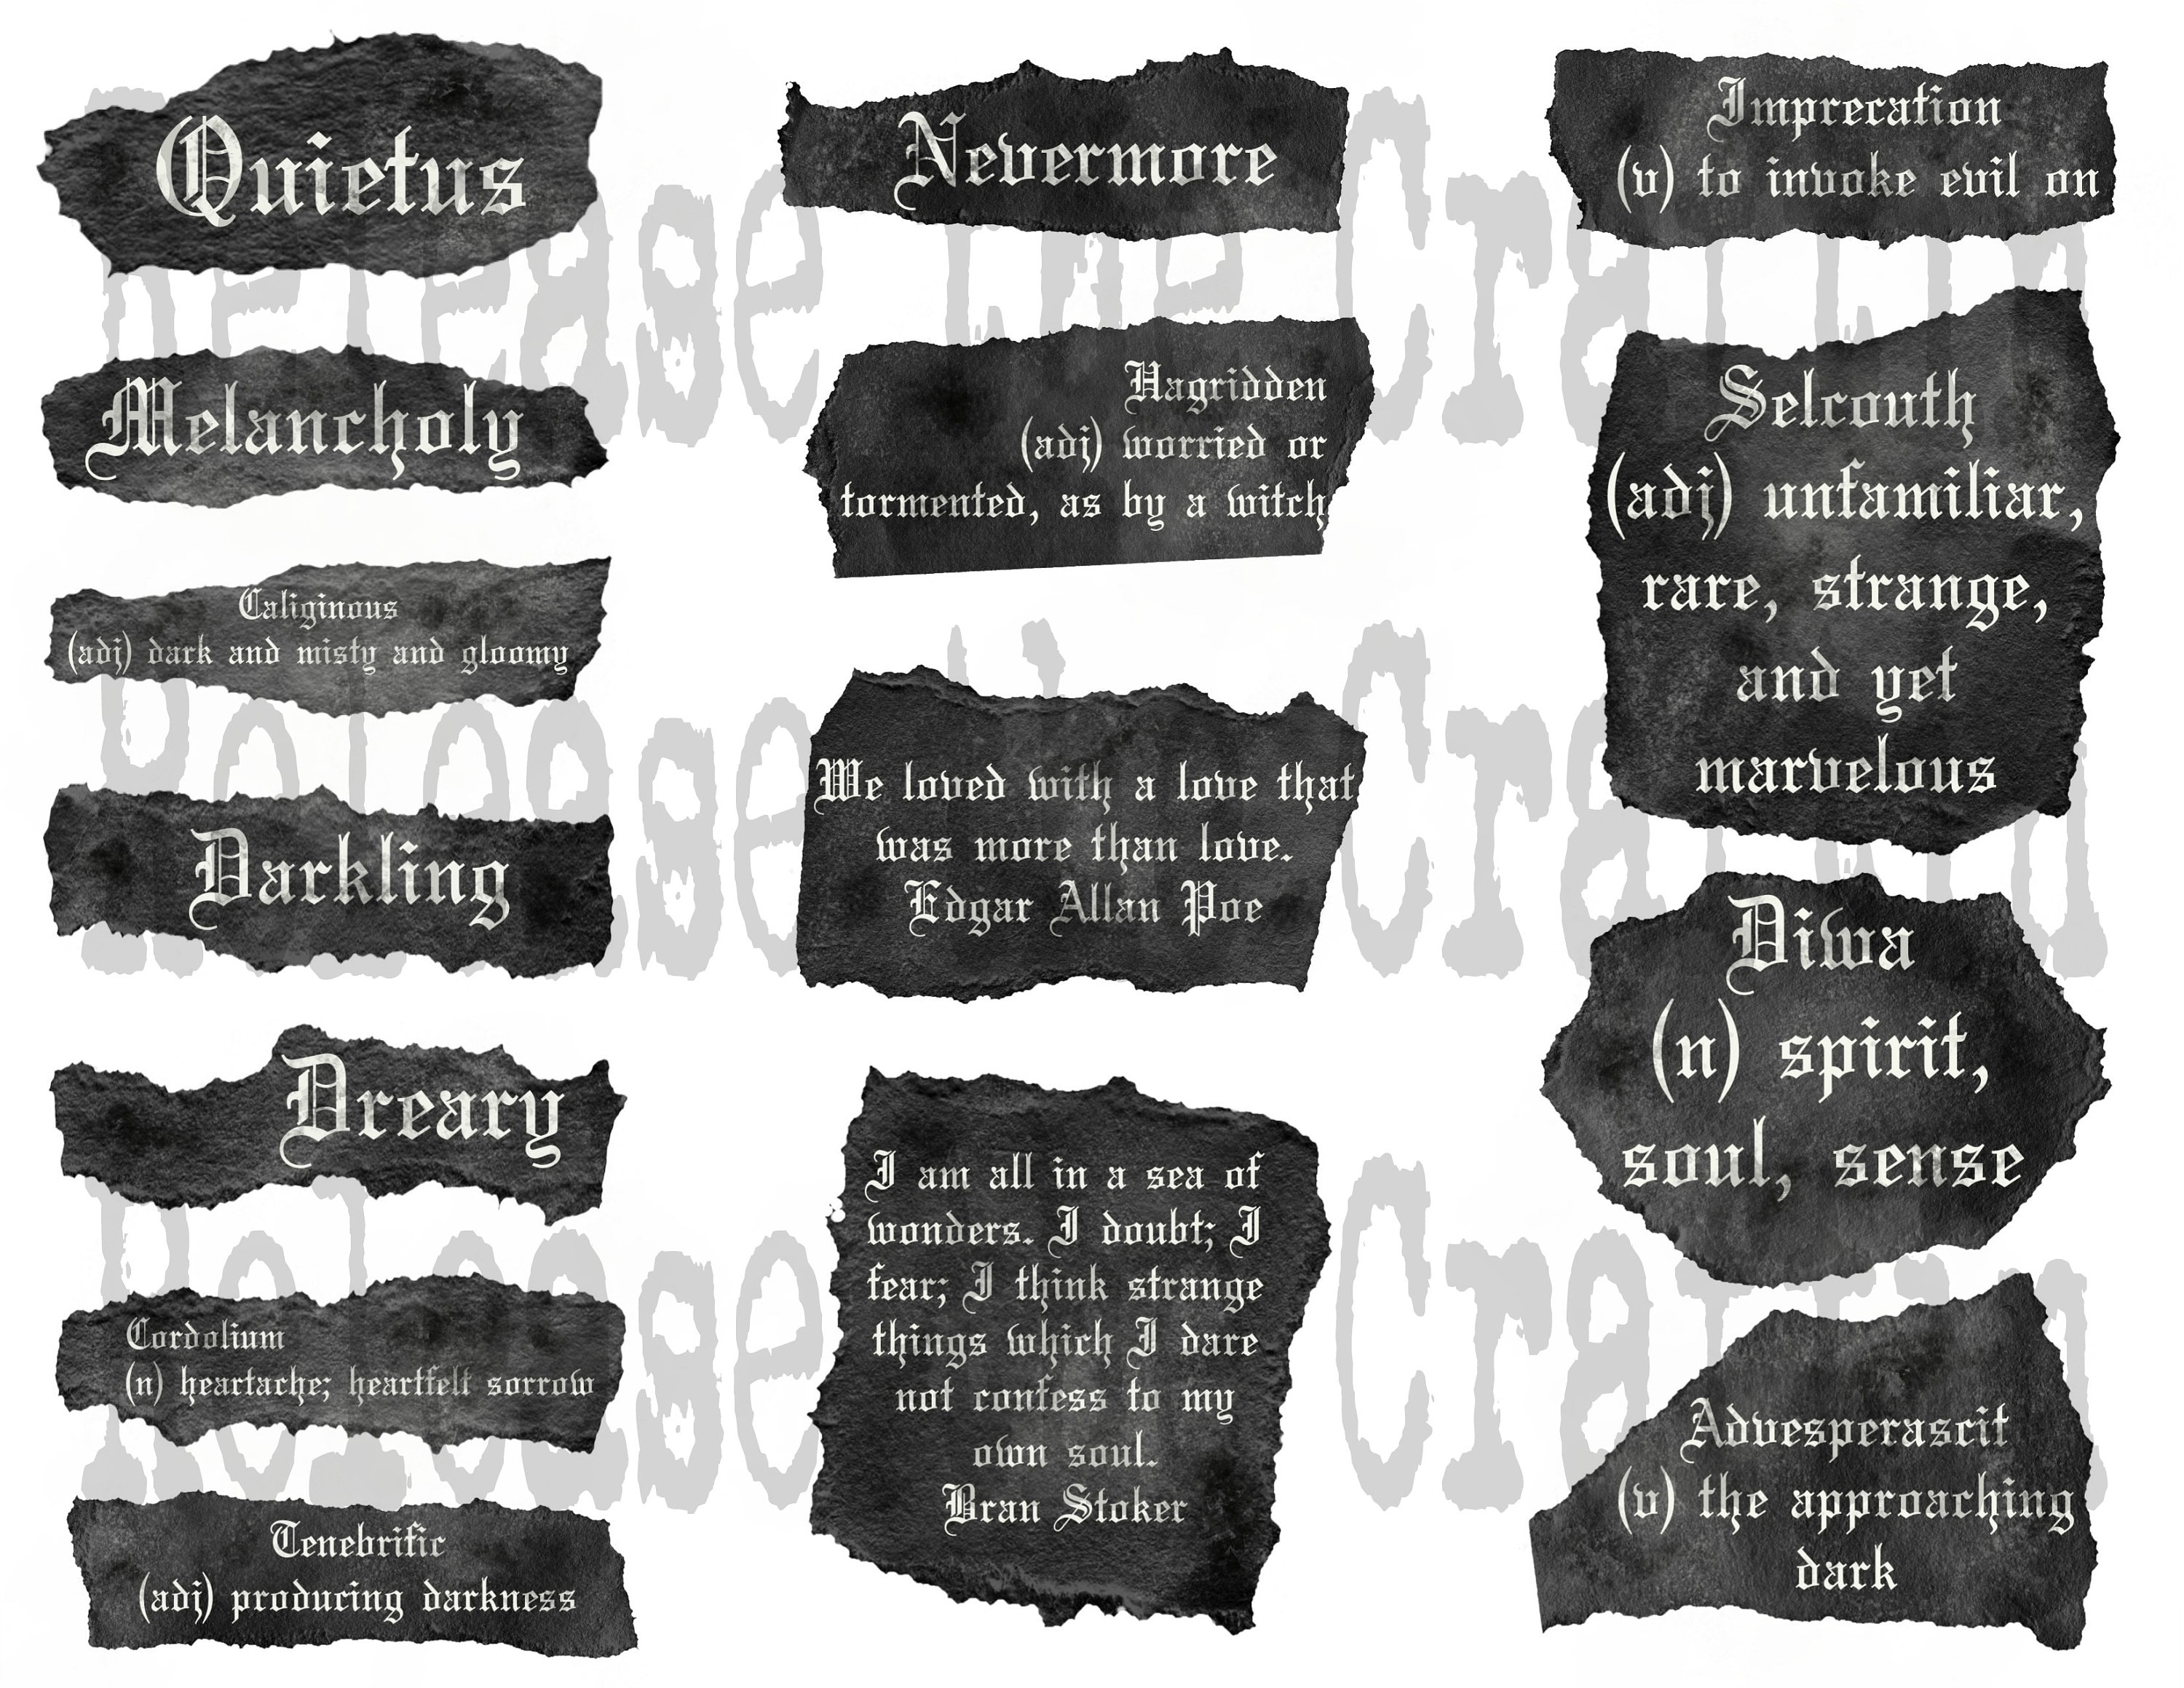 Quietus
Melancholy
Caliginous
(adj) dark and misty and gloomy
Darkling
Dreary
Cordolium
(n) heartache; heartfelt sorrow
Tenebrific
(adj) producing darkness
Nevermore
Hagridden
(adj) worried or
tormented, as by a witch
We loved with a love that
was more than love.
Edgar Allan Poe
I am all in a sea of
wonders. I doubt; I
fear; I think strange
things which I dare
not confess to my
own soul.
Bran Stoker
Imprecation
(v) to invoke evil on
Selcouth
(adj) unfamiliar,
rare, strange,
and yet
marvelous
Diwa
(n) spirit,
soul, sense
Advesperascit
(v) the approaching
dark
Release the Cra